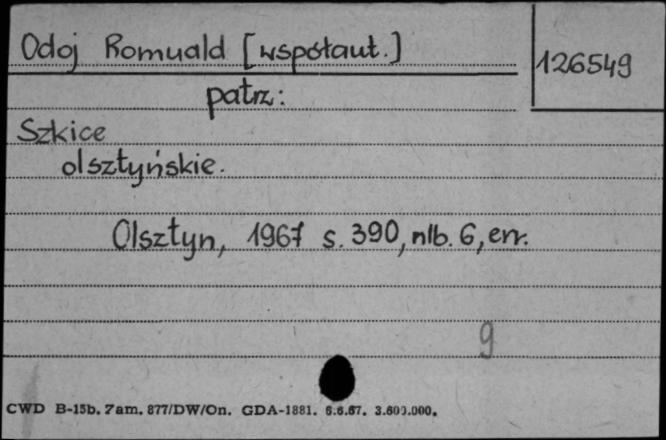 Odoj Romuald [współaut.]
126549
patrz:
Szkice
olsztyńskie.
Olsztyn, 1967 s. 390, nlb. 6, err.
9
CWD B-15b. Zam. 877/DW/On. GDA-1881. 6.6.67. 3.600.000.